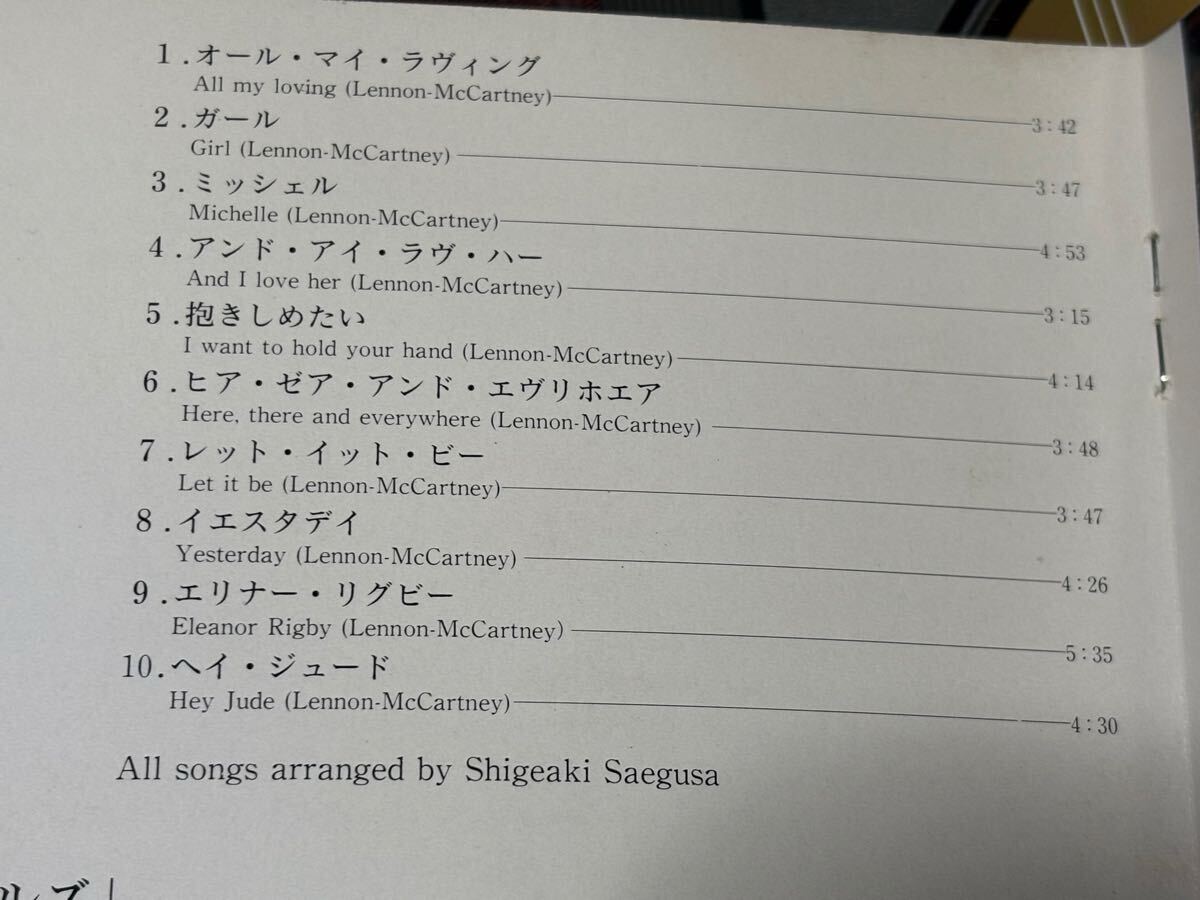 1.オール・マイ・ラヴィング
All my loving (Lennon-McCartney) 3:42
2.ガール
Girl (Lennon-McCartney) 3:47
3.ミッシェル
Michelle (Lennon-McCartney) 4:53
4.アンド・アイ・ラヴ・ハー
And I love her (Lennon-McCartney) 3:15
5.抱きしめたい
I want to hold your hand (Lennon-McCartney) 4:14
6.ヒア・ゼア・アンド・エヴリホエア
Here, there and everywhere (Lennon-McCartney) 3:48
7.レット・イット・ビー
Let it be (Lennon-McCartney) 3:47
8.イエスタデイ
Yesterday (Lennon-McCartney) 4:26
9.エリナー・リグビー
Eleanor Rigby (Lennon-McCartney) 5:35
10.ヘイ・ジュード
Hey Jude (Lennon-McCartney) 4:30
All songs arranged by Shigeaki Saegusa
ルブ